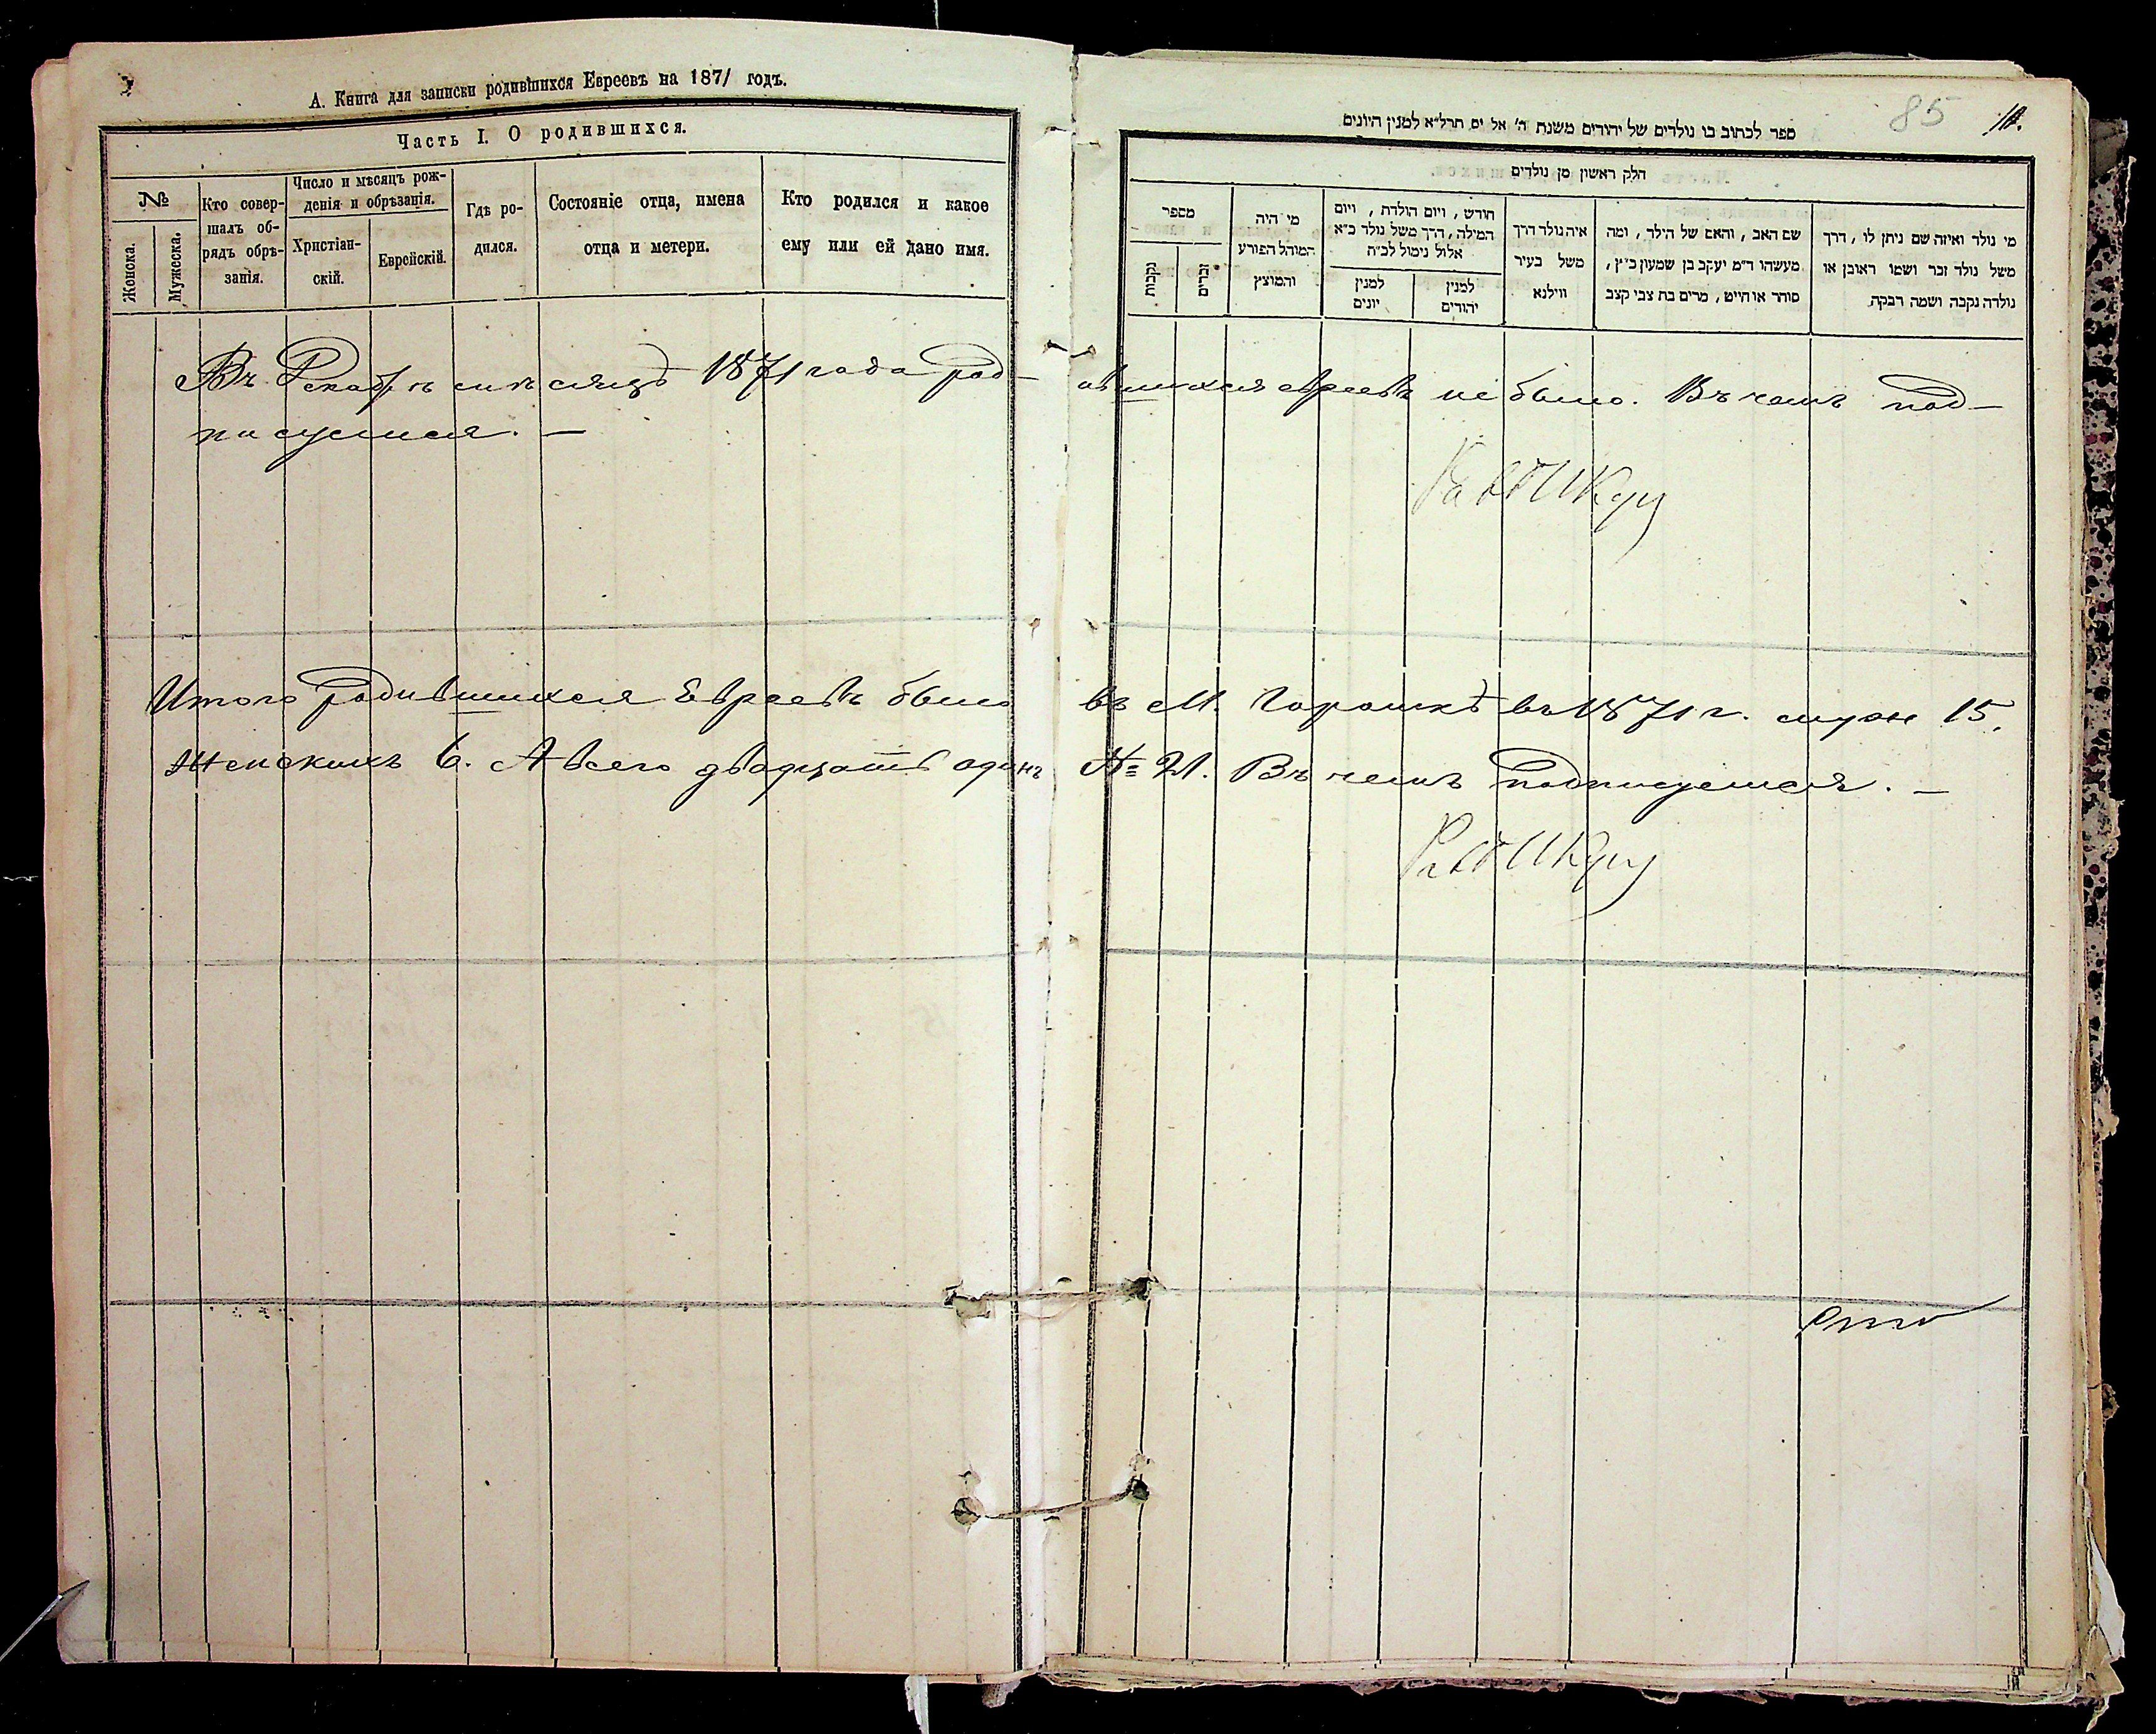 А. Книга для записки родившихся Евреевъ на 1871 годъ.
Часть I. О родившихся.
№
Женска.
Мужеска.
Кто совер-
шалъ об-
рядъ обрѣ-
занія.
Число и мѣсяцъ рож-
денія и обрѣзанія.
Христіан-
скій.
Еврейскій.
Гдѣ ро-
дился.
Состояніе отца, имена
отца и метери.
Кто родился и какое
ему или ей дано имя.
85
ספר לכתוב בו נולדים של יהודים משנת ה' אל ים תרל״א למנין היונים
חלק ראשון מן נולדים
מספר
נקבות
זכרים
מי היה
המוהל הפורע
והמוצץ
חודש, ויום הולדת, ויום
המילה, דרך משל נולד כ״א
אלול נימול לכ״ח
למנין
יונים
למנין
יהודים
איה נולד דרך
משל בעיר
ווילנא
שם האב, והאם של הילד, ומה
מעשהו ד״מ יעקב בן שמעון כ״ץ,
סוחר או חייט, מרים בת צבי קצב
מי נולד ואיזה שם ניתן לו, דרך
משל נולד זכר ושמו ראובן או
נולדה נקבה ושמה רבקה
Въ Декабрѣ мѣсяцѣ 1871 года род-ившихся евреевъ не было. Въ чемъ под-
писуемся. —
Итого родившихся Евреевъ было въ М. Горошкѣ въ 1871 г. муж 15.
Женскихъ 6. А всего двадцать одинъ № 21. Въ чемъ подписуемся. —